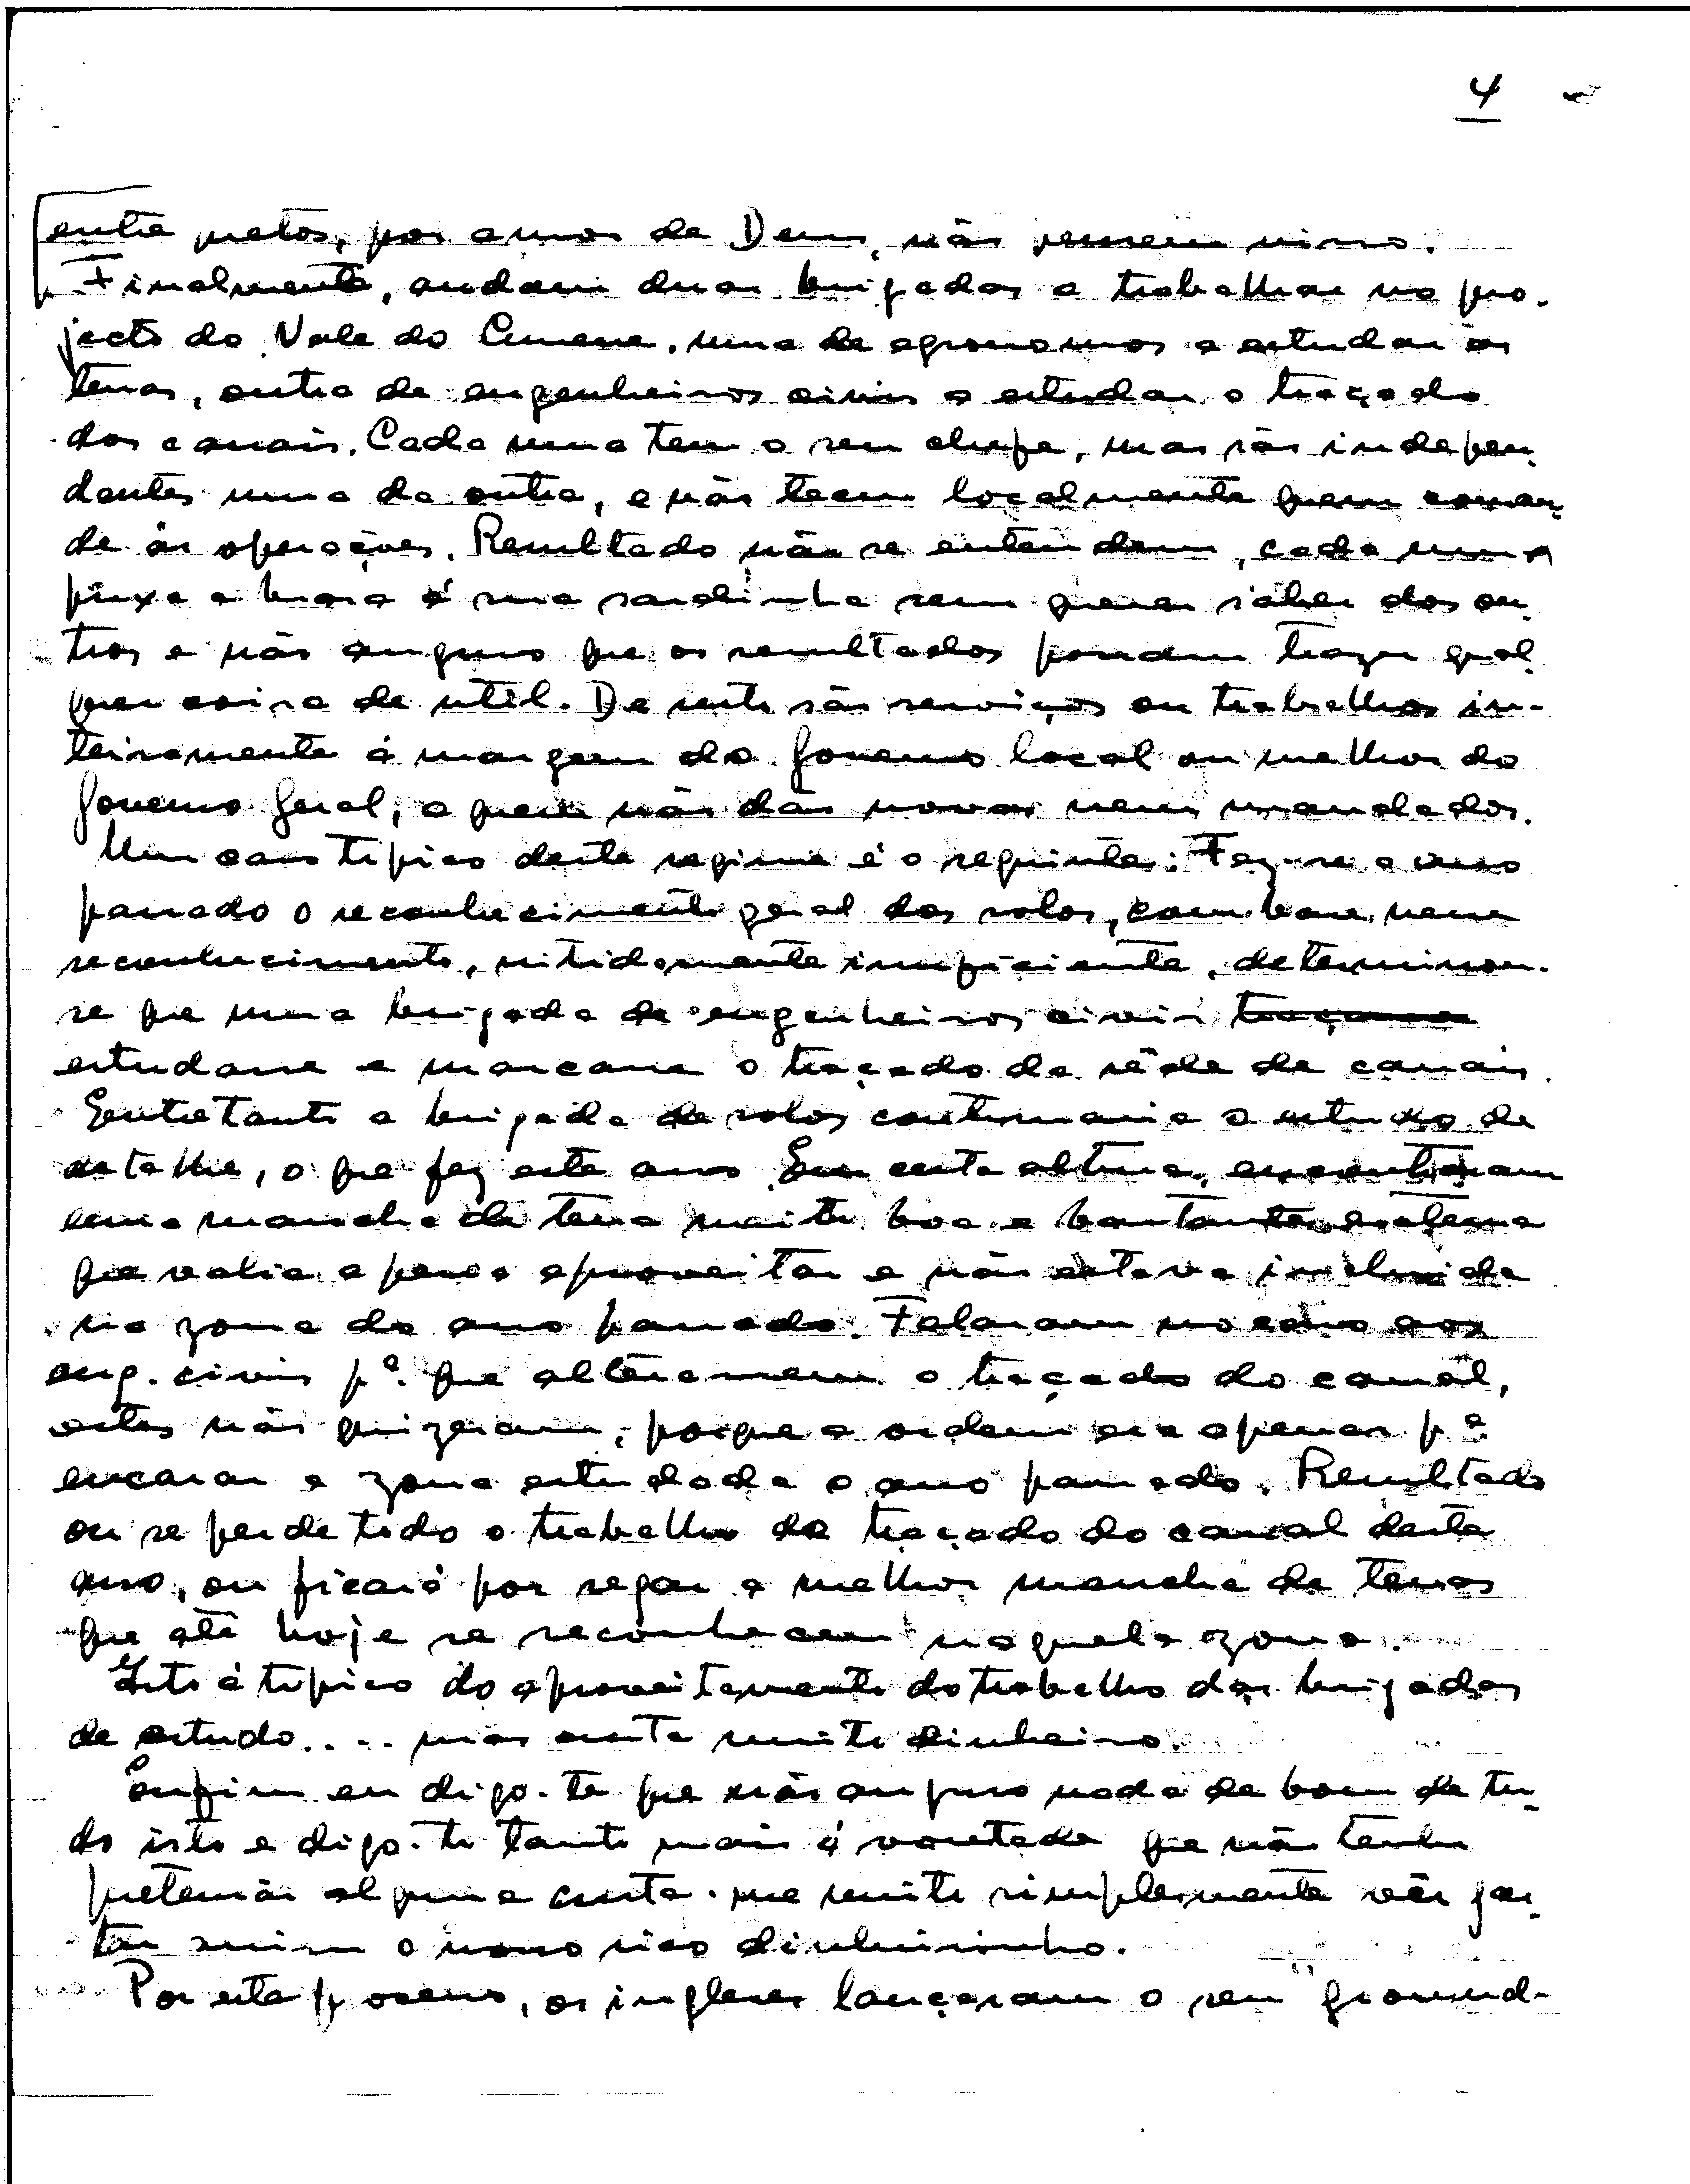 4
entre pretos, por amor de Deus, não pensem nisso.
Finalmente, andam duas brigadas a trabalhar no pro-
jecto do Vale do Cunene, uma de agronomos a estudar as
terras, outra de engenheiros civis a estudar o traçado
dos canais. Cada uma tem o seu chefe, mas são indepen-
dentes uma da outra, e não teem localmente quem coman-
de as operações. Resultado não se entendem, cada uma
puxa a brasa á sua sardinha sem querer saber dos ou-
tros e não auguro que os resultados possam trazer qual-
quer coisa de util. De resto são serviços ou trabalhos in-
teiramente á margem do Governo local ou melhor do
Governo Geral, a quem não dão novas nem mandados.
Um caso tipico deste regime é o seguinte: Fez-se o ano
passado o reconhecimento geral dos solos, com base nesse
reconhecimento, nitidamente insuficiente, determinou-
se que uma brigada de engenheiros civis traçasse
estudasse e marcasse o traçado da rêde de canais.
Entretanto a brigada de solos continuaria o estudo de
detalhe, o que fez este ano. Em certa altura, encontraram
uma mancha de terra muito boa e bastante extensa
que valia a pena aproveitar e não estava incluida
na zona do ano passado. Falaram no caso aos
eng. civis pª. que alterassem o traçado do canal,
estes não quizeram, porque a ordem era apenas pª
encarar a zona estudada o ano passado. Resultado
ou se perde todo o trabalho do traçado do canal deste
ano, ou ficará por regar a melhor mancha de terras
que até hoje se reconheceu naquela zona.
Isto é tipico do aproveitamento do trabalho das brigadas
de estudo.... mas custa muito dinheiro.
Enfim eu digo-te que não auguro nada de bom de tu-
do isto e digo-to tanto mais á vontade que não tenho
pretensão alguma custa-me muito simplesmente vêr gas-
tar assim o nosso rico dinheirinho.
Por este processo, os ingleses lançaram o seu "ground-